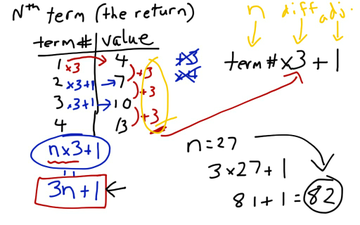 Nth term (the return)
n diff adj.
term# value
term# x3 + 1
1 x3 4 +3 x3
2 x3+1 → 7 +3 x4
3 x3+1 → 10 +3
4 13
n x 3 + 1
3n + 1
n = 27
3 x 27 + 1
81 + 1 = 82